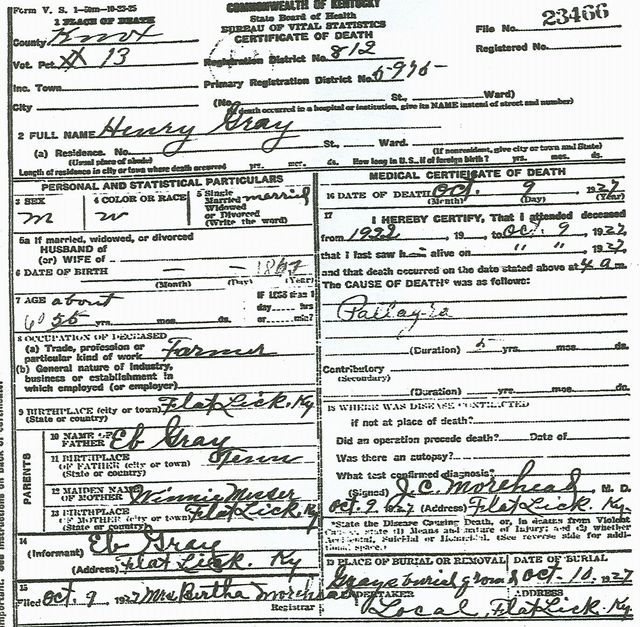 Form V. S. 1-50m-10-23-25
COMMONWEALTH OF KENTUCKY
State Board of Health
BUREAU OF VITAL STATISTICS
CERTIFICATE OF DEATH
File No. 23466
Registered No.
1 PLACE OF DEATH
County Knox
Vot. Pct. # 13
Registration District No. 812
Inc. Town
Primary Registration District No.
City
(No. St., Ward)
(If death occurred in a hospital or institution, give its NAME instead of street and number)
2 FULL NAME Henry Gray
(a) Residence. No. St., Ward.
(Usual place of abode) (If nonresident, give city or town and State)
Length of residence in city or town where death occurred yrs. mos. ds. How long in U.S., if of foreign birth? yrs. mos. ds.
PERSONAL AND STATISTICAL PARTICULARS
3 SEX M
4 COLOR OR RACE W
5 Single Married Widowed or Divorced (Write the word) married
5a If married, widowed, or divorced
HUSBAND of
(or) WIFE of
6 DATE OF BIRTH — — 1867
(Month) (Day) (Year)
7 AGE about
60 55 yrs. mos. ds.
IF LESS than 1 day hrs or min?
8 OCCUPATION OF DECEASED
(a) Trade, profession or particular kind of work Farmer
(b) General nature of industry, business or establishment in which employed (or employer)
9 BIRTHPLACE (city or town) Flat Lick. Ky
(State or country)
PARENTS
10 NAME OF FATHER Eb Gray
11 BIRTHPLACE OF FATHER (city or town) Tenn
(State or country)
12 MAIDEN NAME OF MOTHER Winnie Messer
13 BIRTHPLACE OF MOTHER (city or town) Flat Lick. Ky
(State or country)
14
(Informant) Eb Gray
(Address) Flat Lick. Ky
15
Filed Oct. 9 1927 Mrs. Bertha Morehead
Registrar
MEDICAL CERTIFICATE OF DEATH
16 DATE OF DEATH Oct. 9 1927
(Month) (Day) (Year)
17 I HEREBY CERTIFY, That I attended deceased
from 1922, 19 , to Oct. 9, 1927,
that I last saw h alive on " ", 1927,
and that death occurred on the date stated above at 4 a m.
The CAUSE OF DEATH* was as follows:
(Duration) yrs. mos. ds.
Contributory
(Secondary)
(Duration) yrs. mos. ds.
18 WHERE WAS DISEASE CONTRACTED
if not at place of death?
Did an operation precede death? Date of
Was there an autopsy?
What test confirmed diagnosis?
(Signed) J. C. Morehead, M. D.
Oct. 9 1927 (Address) Flat Lick. Ky.
*State the Disease Causing Death, or, in deaths from Violent Causes, state (1) Means and nature of Injury; and (2) whether Accidental, Suicidal or Homicidal. (See reverse side for additional space.)
19 PLACE OF BURIAL OR REMOVAL DATE OF BURIAL
Grays burial ground Oct-10. 1927
UNDERTAKER ADDRESS
Local, Flat Lick. Ky